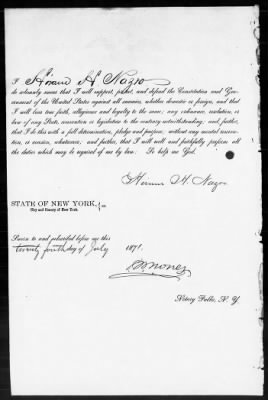 I, Hiram H. Nazro
do solemnly swear that I will support, protect, and defend the Constitution and Gov-
ernment of the United States against all enemies, whether domestic or foreign, and that
I will bear true faith, allegiance and loyalty to the same; any ordinance, resolution, or
law of any State, convention or legislation to the contrary notwithstanding; and further,
that I do this with a full determination, pledge and purpose; without any mental reserva-
tion, or evasion, whatsoever; and further, that I will well and faithfully perform all
the duties which may be required of me by law. So help me God.
H. Nazro
STATE OF NEW YORK, } ss.
City and County of New York.
Sworn to and subscribed before me this
twenty fourth day of July 1871.
Notary Public, N. Y.